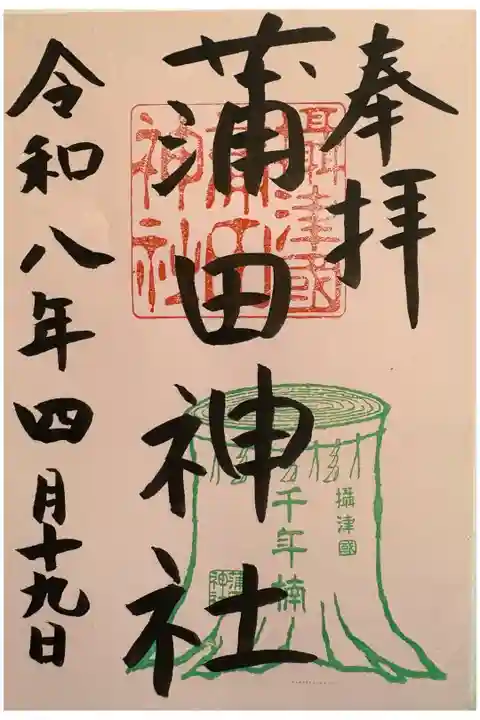 奉拝
攝津國
蒲田神社
蒲田神社
攝津國
千年楠
蒲田神社
令和八年四月十九日